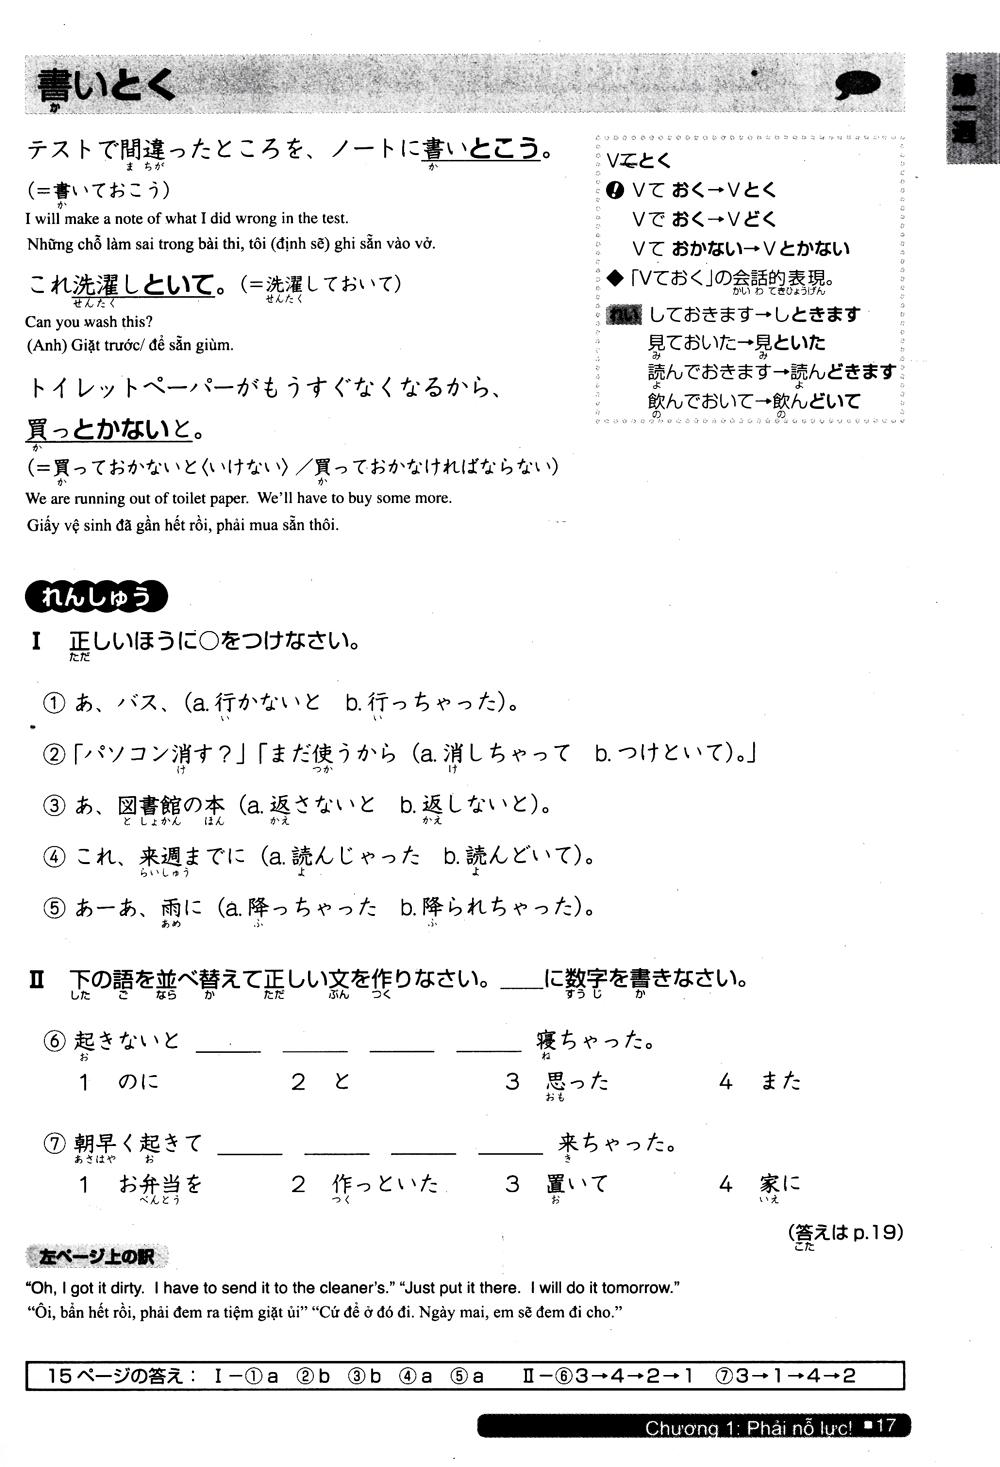 書いとく
か
第一週
テストで間違ったところを、ノートに書いとこう。
ま ちが か
(=書いておこう)
か
I will make a note of what I did wrong in the test.
Những chỗ làm sai trong bài thi, tôi (định sẽ) ghi sẵn vào vở.
これ洗濯しといて。(=洗濯しておいて)
せんたく せんたく
Can you wash this?
(Anh) Giặt trước/ để sẵn giùm.
トイレットペーパーがもうすぐなくなるから、
買っとかないと。
か
(=買っておかないと〈いけない〉/買っておかなければならない)
か か
We are running out of toilet paper. We'll have to buy some more.
Giấy vệ sinh đã gần hết rồi, phải mua sẵn thôi.
Vてとく
! Vて おく→Vとく
Vで おく→Vどく
Vて おかない→Vとかない
◆「Vておく」の会話的表現。
かい わ てきひょうげん
れい しておきます→しときます
見ておいた→見といた
み み
読んでおきます→読んどきます
よ よ
飲んでおいて→飲んどいて
の の
れんしゅう
I 正しいほうに○をつけなさい。
ただ
① あ、バス、(a.行かないと b.行っちゃった)。
い い
②「パソコン消す?」「まだ使うから (a.消しちゃって b.つけといて)。」
け つか け
③ あ、図書館の本 (a.返さないと b.返しないと)。
と しょかん ほん かえ かえ
④ これ、来週までに (a.読んじゃった b.読んどいて)。
らいしゅう よ よ
⑤ あーあ、雨に (a.降っちゃった b.降られちゃった)。
あめ ふ ふ
II 下の語を並べ替えて正しい文を作りなさい。___に数字を書きなさい。
した ご なら か ただ ぶん つく すう じ か
⑥ 起きないと ____ ____ ____ ____ 寝ちゃった。
お ね
1 のに 2 と 3 思った 4 また
おも
⑦ 朝早く起きて ____ ____ ____ ____ 来ちゃった。
あさはや お き
1 お弁当を 2 作っといた 3 置いて 4 家に
べんとう つく お いえ
(答えは p.19)
こた
左ページ上の訳
“Oh, I got it dirty. I have to send it to the cleaner's.” “Just put it there. I will do it tomorrow.”
“Ôi, bẩn hết rồi, phải đem ra tiệm giặt ủi” “Cứ để ở đó đi. Ngày mai, em sẽ đem đi cho.”
15ページの答え: I－①a ②b ③b ④a ⑤a II－⑥3→4→2→1 ⑦3→1→4→2
Chương 1: Phải nỗ lực! ■17